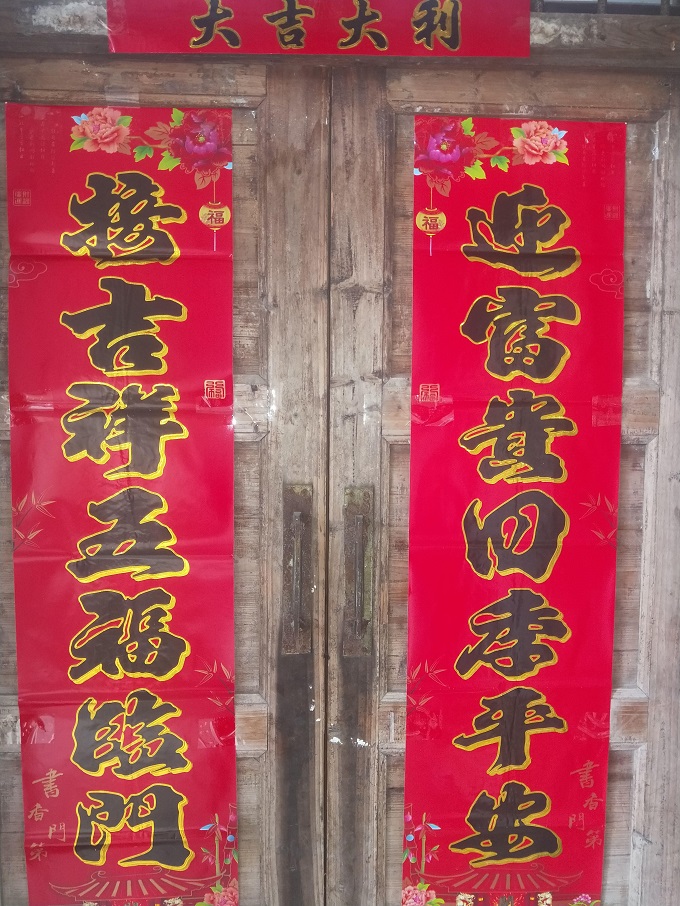 大吉大利
迎富貴四季平安
接吉祥五福臨門
福
福
書香門第
書香門第